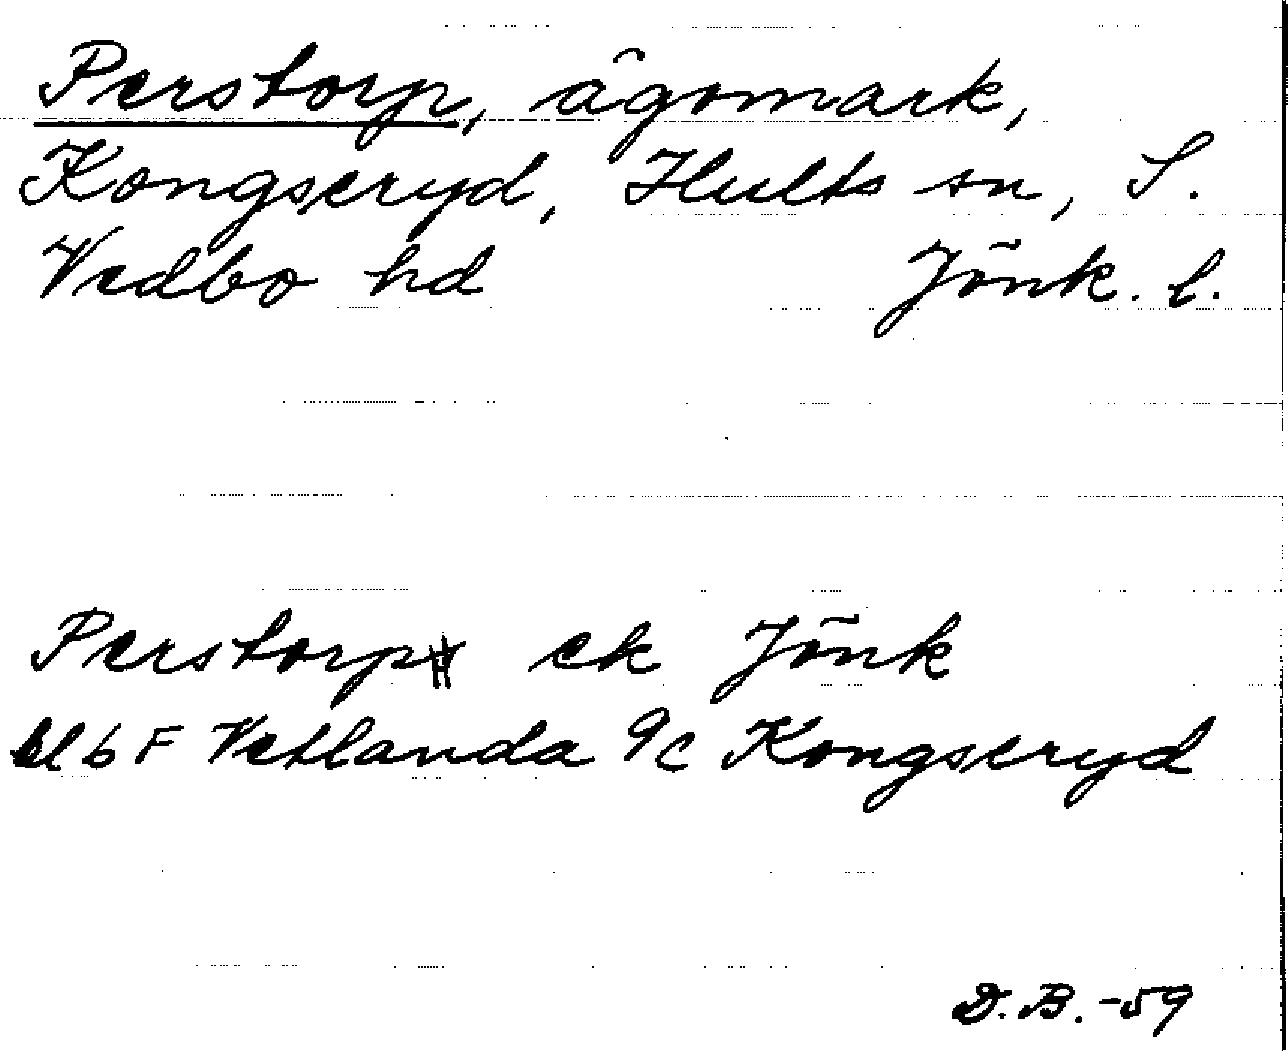 Perstorp, ägomark,
Kongseryd, Hults sn, S.
Vedbo hd Jönk. l.
Perstorp ek Jönk
bl 6 F Vetlanda 9c Kongseryd
D.B. -59